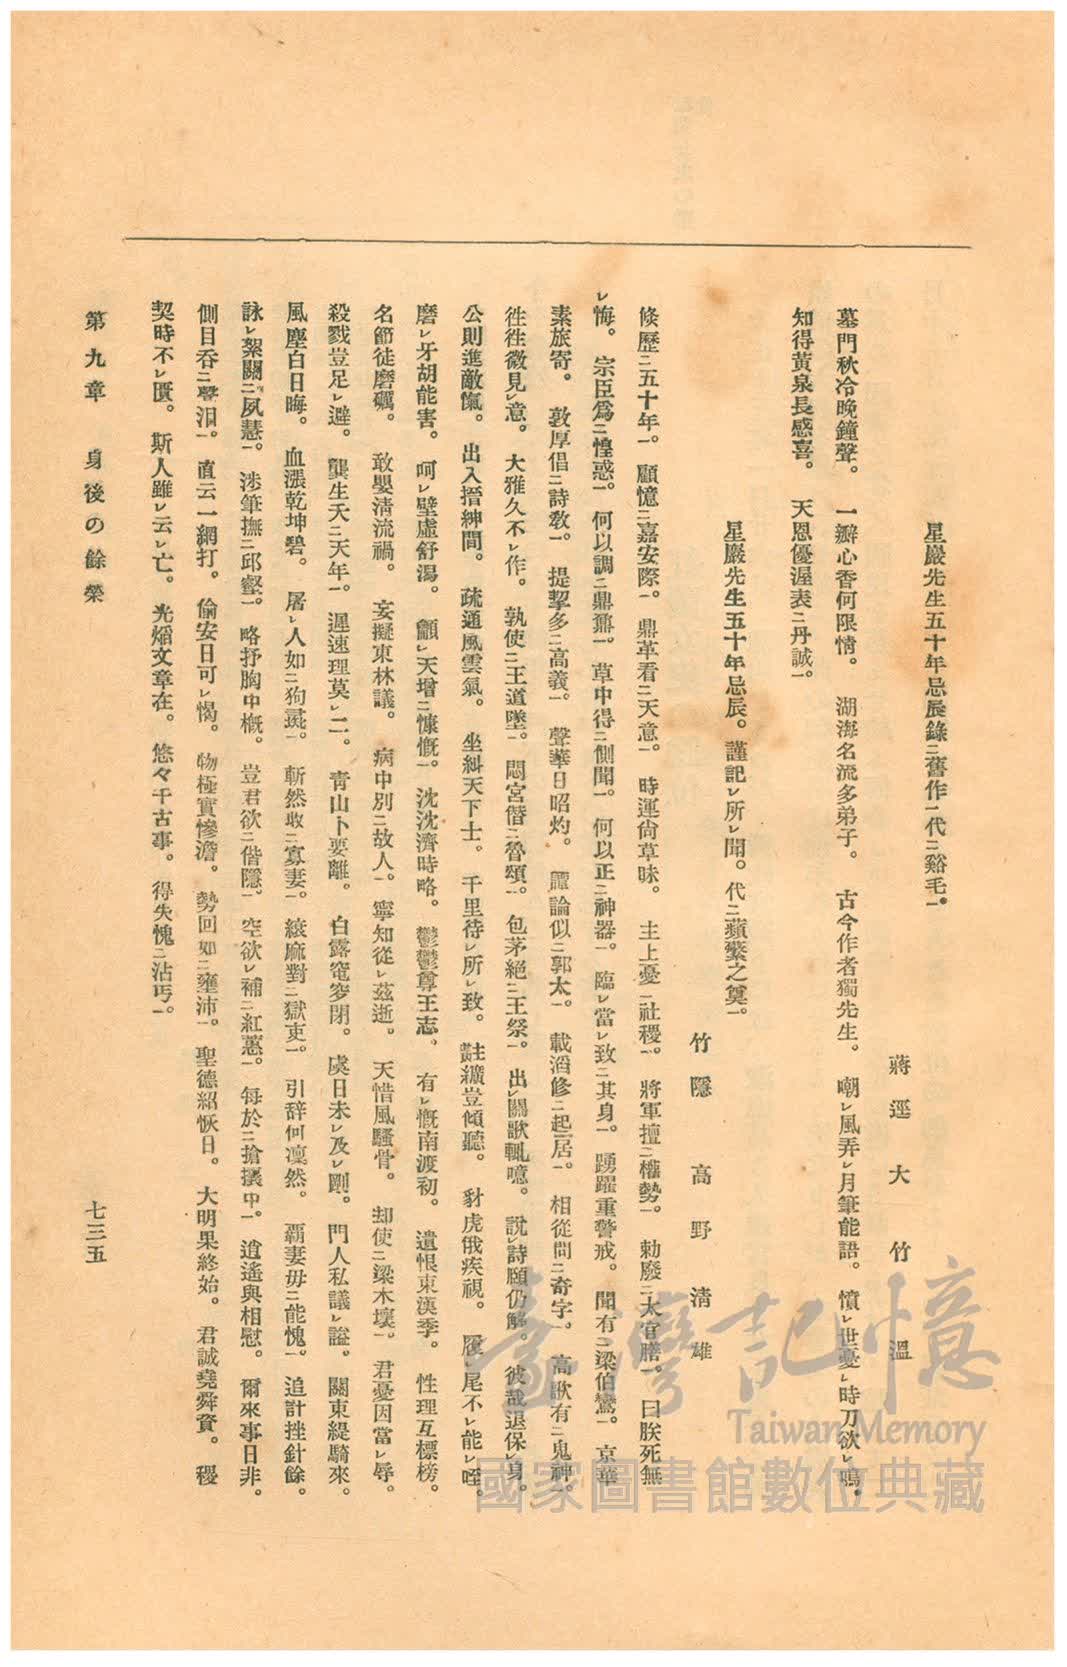 星巖先生五十年忌辰錄㆓舊作㆒代㆓谿毛㆒
蔣逕 大竹 溫
墓門秋冷晚鐘聲。一瓣心香何限情。湖海名流多弟子。古今作者獨先生。嘲㆑風弄㆑月筆能語。憤㆑世憂㆑時刀欲㆑鳴。
知得黃泉長感喜。天恩優渥表㆓丹誠㆒。
星巖先生五十年忌辰。謹記㆑所㆑聞。代㆓蘋蘩之奠㆒。
竹隱 高野 清雄
倏歷㆓五十年㆒。顧憶㆓嘉安際㆒。鼎革看㆓天意㆒。時運尙草昧。主上憂㆓社稷㆒。將軍擅㆓權勢㆒。勅廢㆓太官膳㆒。曰朕死無
㆑悔。宗臣爲㆓惶惑㆒。何以調㆓鼎鼐㆒。草中得㆓側聞㆒。何以正㆓神器㆒。臨㆑當㆑致㆓其身㆒。踴躍重警戒。聞有㆓梁伯鸞㆒。京華
素旅寄。敦厚倡㆓詩敎㆒。提挈多㆓高義㆒。聲華日昭灼。月論似㆓郭太㆒。載酒修㆓起居㆒。相從問㆓奇字㆒。高歌有㆓鬼神㆒。
徃徃微見㆑意。大雅久不㆑作。孰使㆓王道墜㆒。閟宮僭㆓魯頌㆒。包茅絕㆓王祭㆒。出㆑關歌輒噫。說㆑詩頤仍解。彼哉退保㆑身。
公則進敵愾。出入搢紳間。疏通風雲氣。坐糾天下士。千里待㆑所㆑致。黈纊豈傾聽。豺虎俄疾視。履㆑尾不㆑能㆑咥。
磨㆑牙胡能害。呵㆑壁虛舒湯。顧㆑天增㆓慷慨㆒。沈沈濟時略。鬱鬱尊王志。有㆑慨南渡初。遺恨東漢季。性理互標榜。
名節徒磨礪。敢嬰淸流禍。妄擬東林議。病中別㆓故人㆒。寧知從㆑茲逝。天惜風騷骨。却使㆓梁木壞㆒。君憂因當㆑辱。
殺戮豈足㆑避。龔生夭㆓天年㆒。遲速理莫㆑二。靑山卜要離。白露窀穸閉。虞日未㆑及㆑剛。門人私議㆑諡。關東緹騎來。
風塵白日晦。血漲乾坤碧。屠㆑人如㆓狗彘㆒。斬然收㆓寡妻㆒。縗麻對㆓獄吏㆒。引辞何凜然。覇妻毋㆓能愧㆒。追計挫針餘。
詠㆑絮關㆓夙慧㆒。涉筆撫㆓邱壑㆒。略抒胸中概。豈君欲㆓偕隱㆒。空欲㆑補㆓紅蕙㆒。每於㆓搶攘中㆒。逍遙與相慰。爾來事日非。
側目呑㆓聲泪㆒。直云一網打。偸安日可㆑愒。物極實慘澹。勢回如㆓壅沛㆒。聖德紹恢日。大明果終始。君誠堯舜資。稷
契時不㆑匱。斯人雖㆑云㆑亡。光焰文章在。悠々千古事。得失愧㆓沾丐㆒。
第九章 身後の餘榮
七三五
臺灣記憶
Taiwan Memory
國家圖書館數位典藏